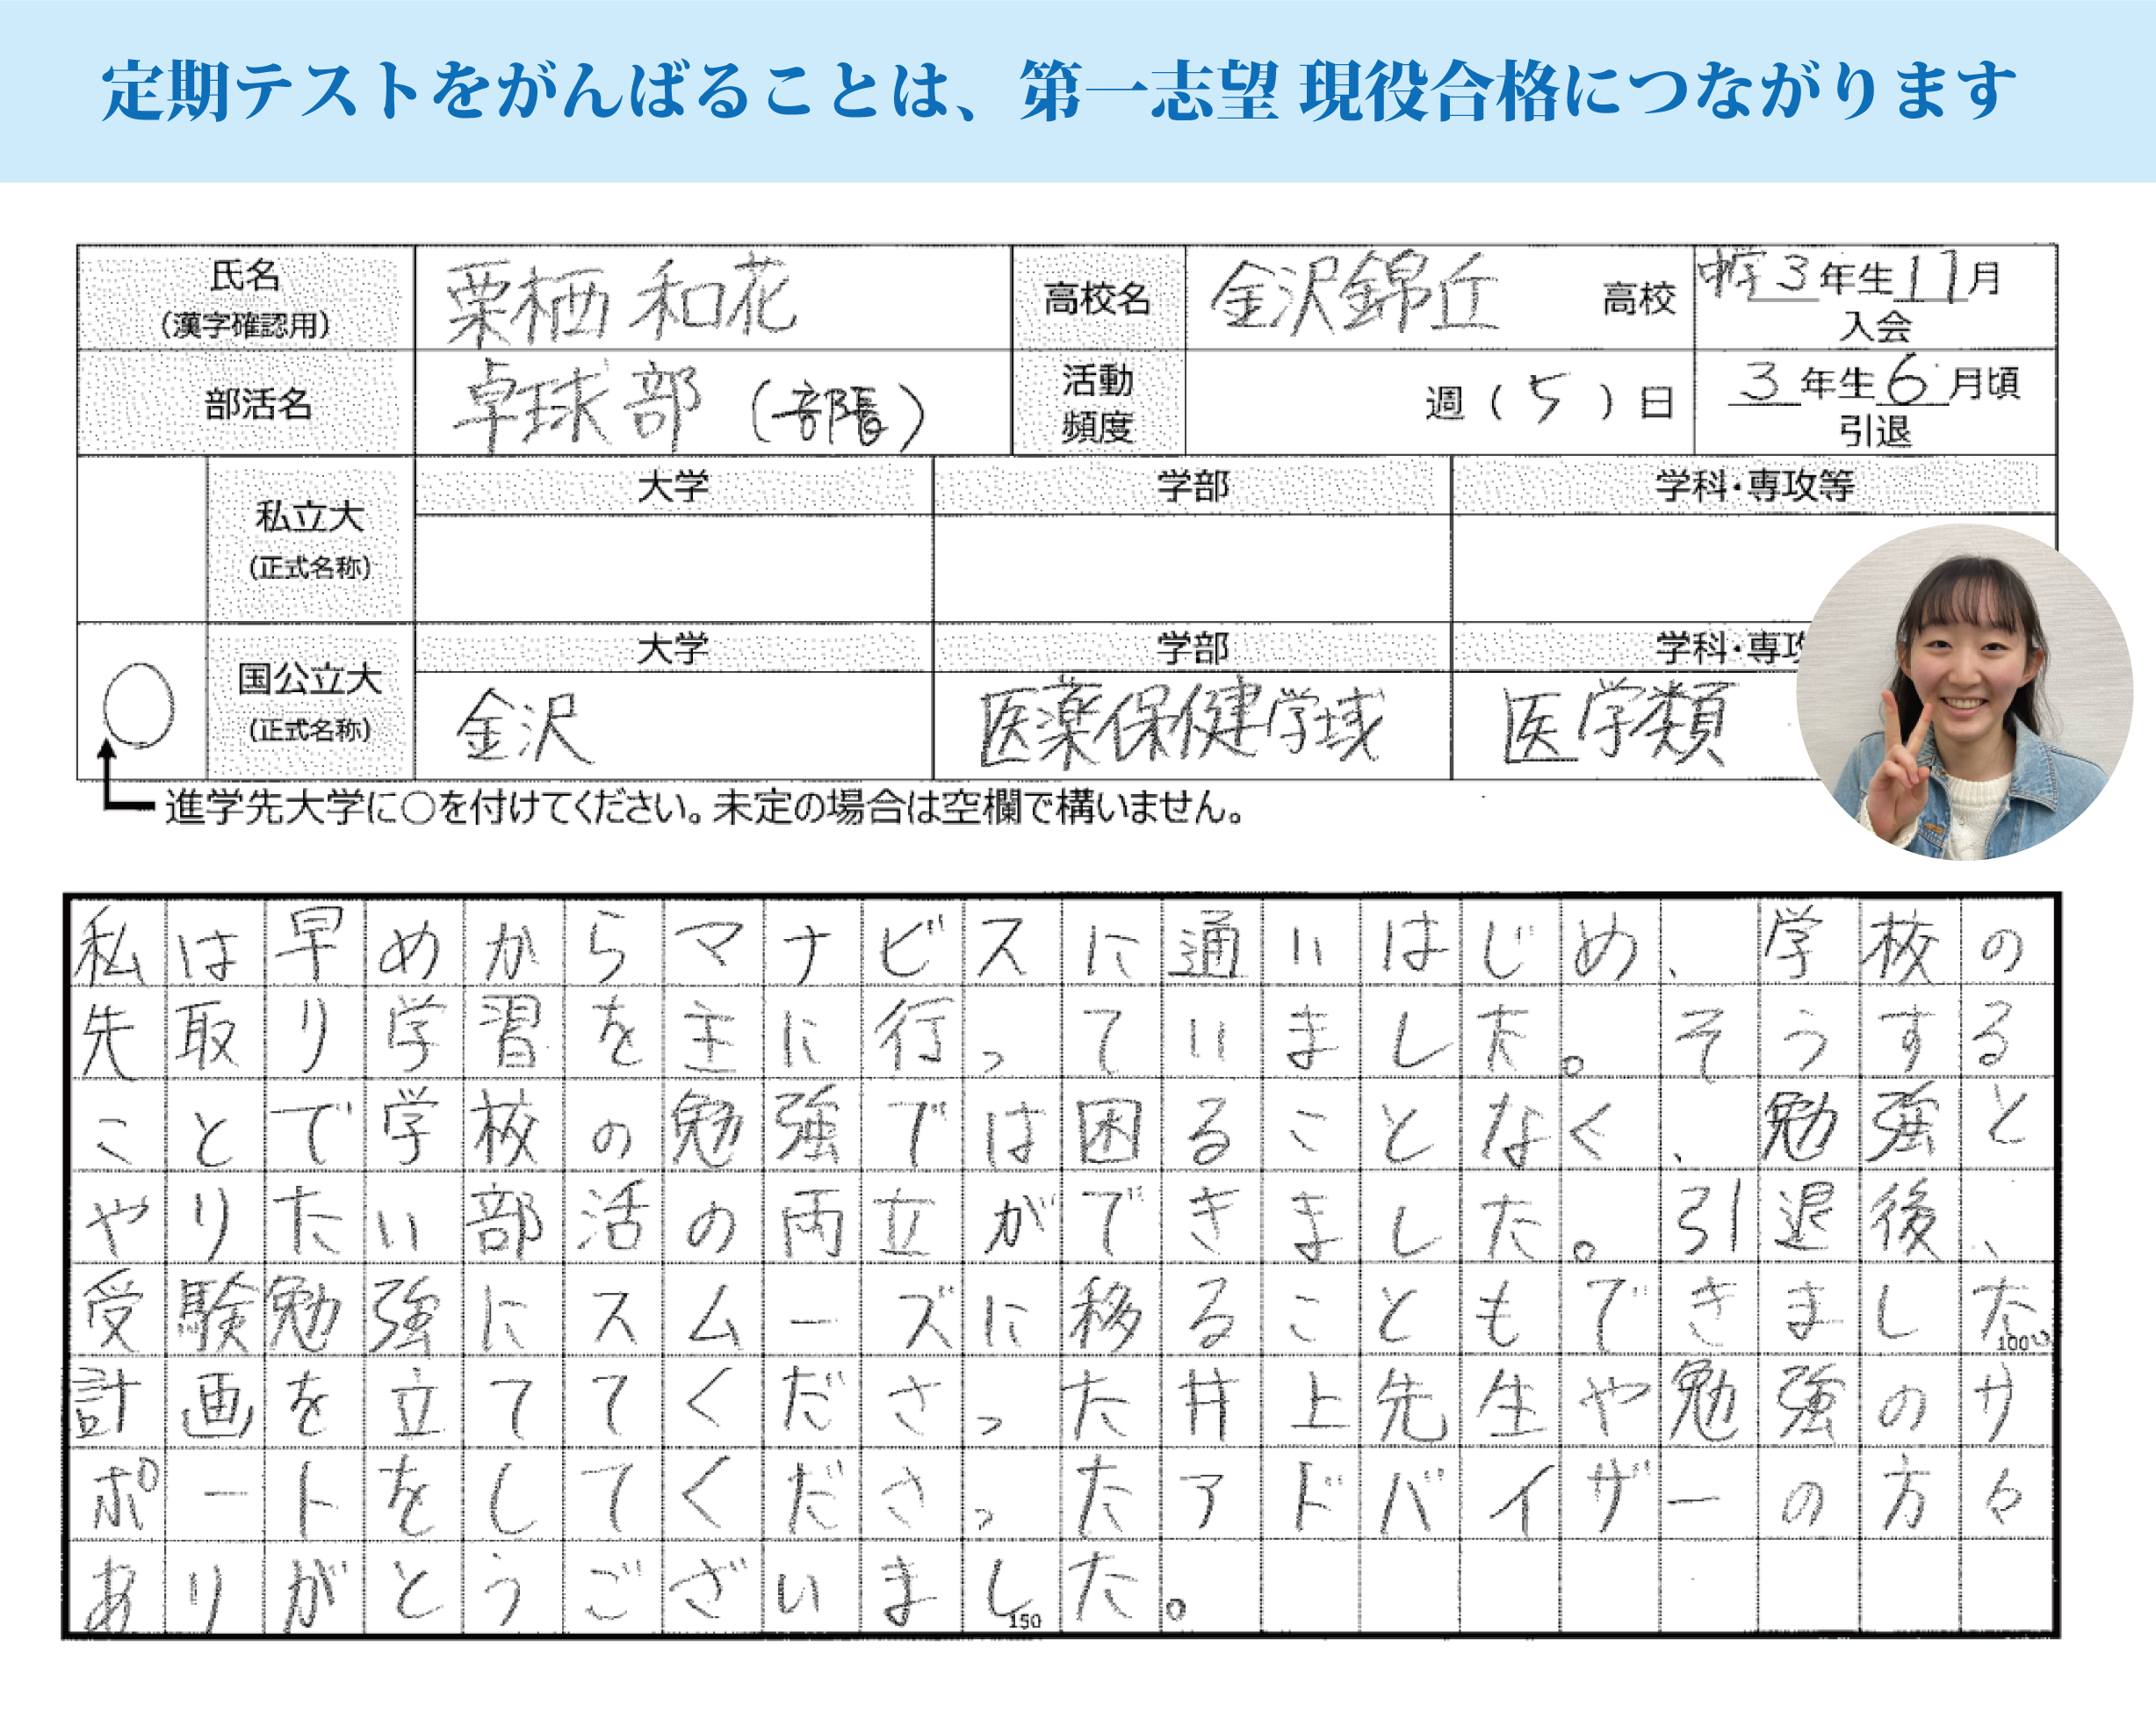 定期テストをがんばることは、第一志望 現役合格につながります
氏名
(漢字確認用)
栗栖 和花
高校名
金沢錦丘 高校
中学3年生11月
入会
部活名
卓球部 (部長)
活動
頻度
週(5)日
3年生6月頃
引退
私立大
(正式名称)
大学
学部
学科・専攻等
国公立大
(正式名称)
大学
学部
学科・専攻
金沢
医薬保健学域
医学類
進学先大学に〇を付けてください。未定の場合は空欄で構いません。
私は早めからマナビスに通いはじめ、学校の
先取り学習を主に行っていました。そうする
ことで学校の勉強では困ることなく、勉強と
やりたい部活の両立ができました。引退後、
受験勉強にスムーズに移ることもできました。
100
計画を立ててくださった井上先生や勉強のサ
ポートをしてくださったアドバイザーの方々
ありがとうございました。
150